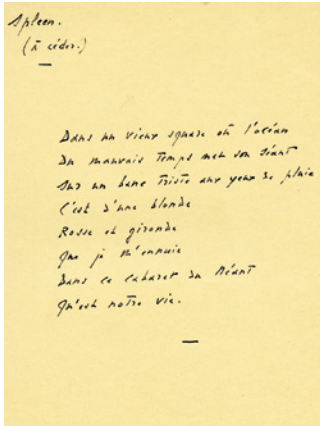 Spleen.
(à céder.)
Dans un vieux square où l'océan
Du mauvais temps met son séant
Sur un banc triste aux yeux de pluie
C'est d'une blonde
Rosse et gironde
Que je m'ennuie
Dans ce cabaret du Néant
Qu'est notre vie.